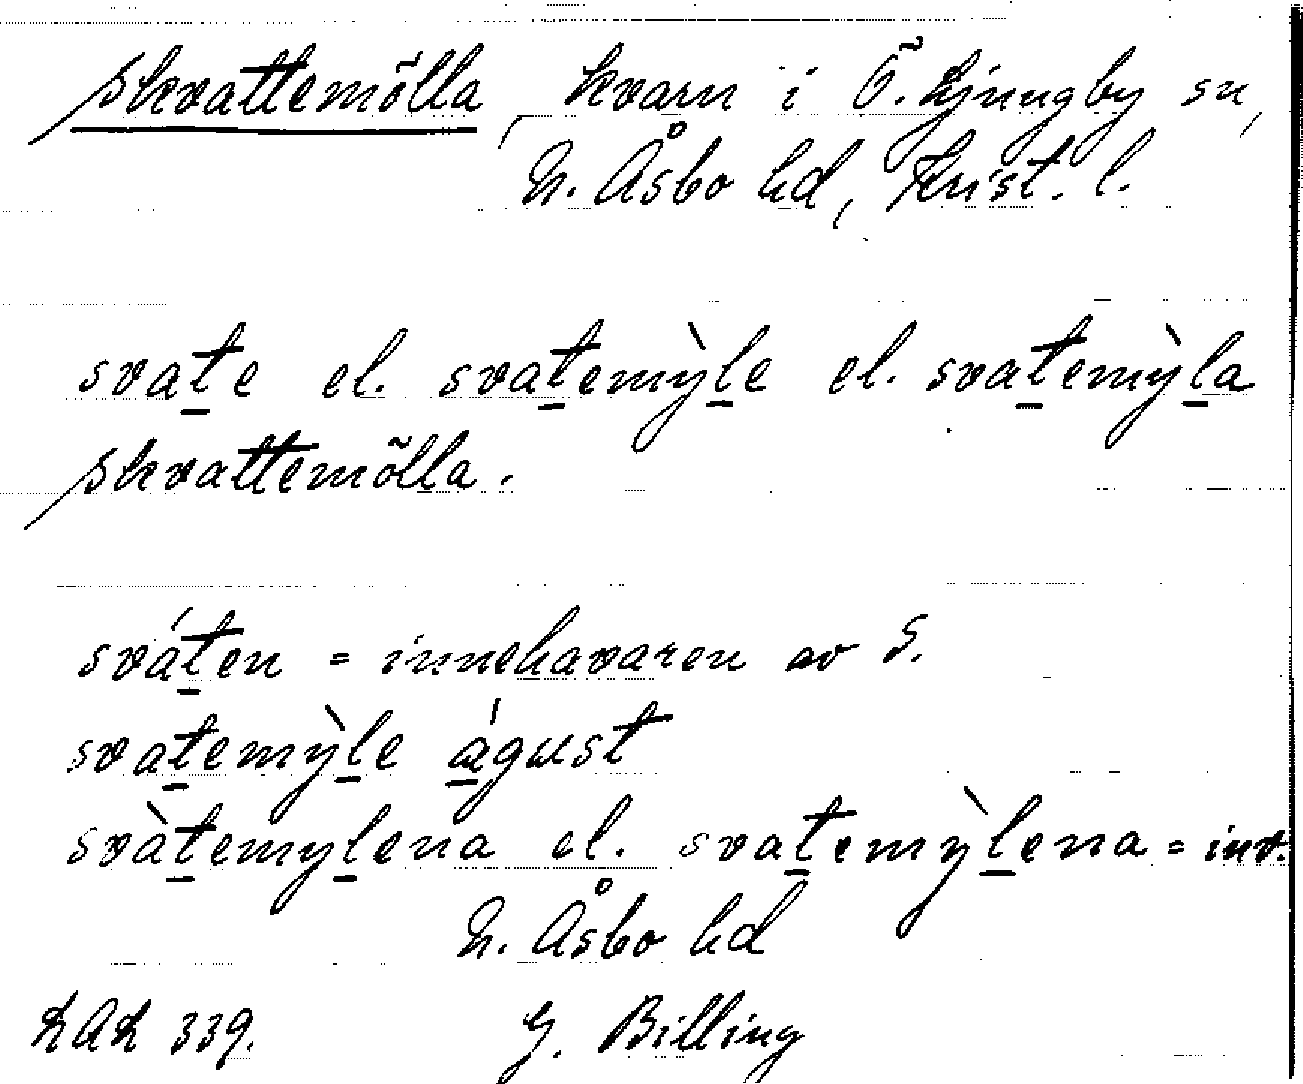 Skvattemölla, kvarn i Ö. Ljungby sn,
N. Åsbo hd, Krist. l.
svate el. svatemỳle el. svatemỳla
Skvattemölla.
sváten = innehavaren av S.
svatemỳle águst
svàtemylena el. svatemỳlena = inv.
N. Åsbo hd
LAL 339. G. Billing